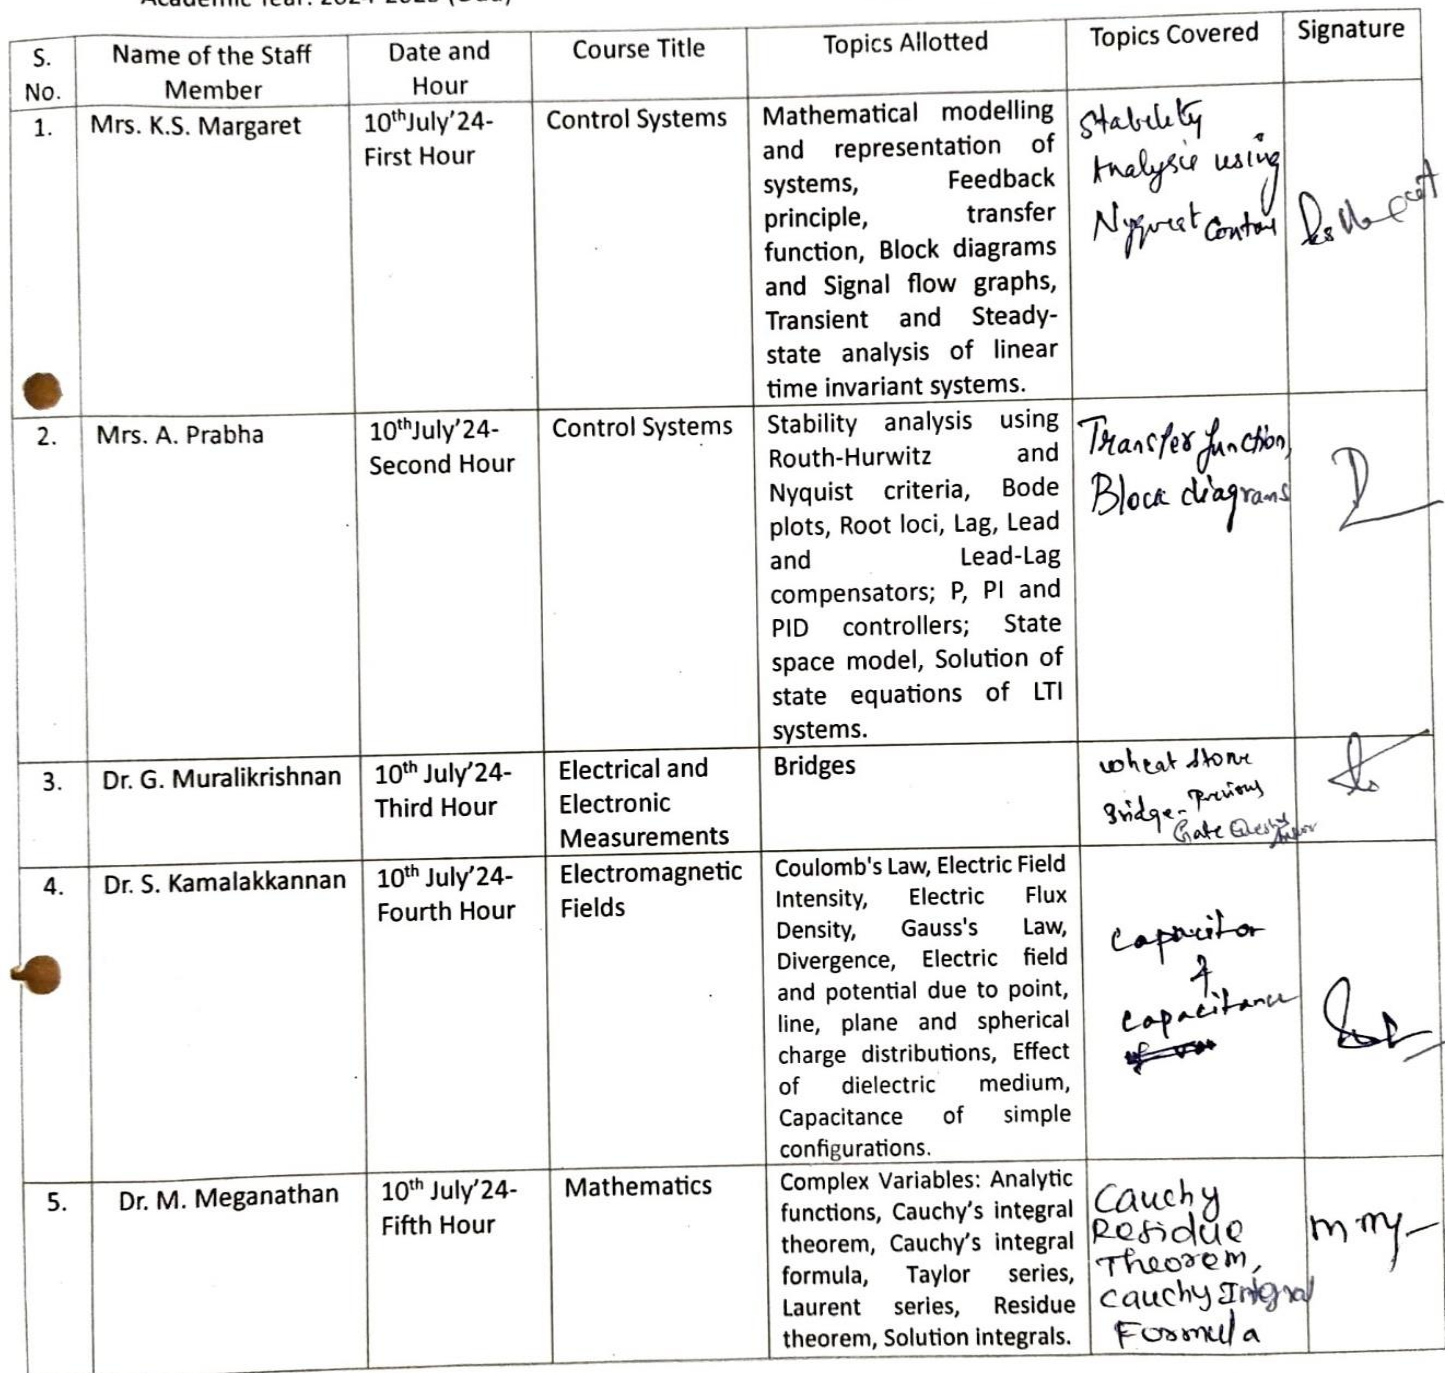 Academic Year: 2024-2025 (Odd)
S.
No.
Name of the Staff
Member
Date and
Hour
Course Title
Topics Allotted
Topics Covered
Signature
1.
Mrs. K.S. Margaret
10thJuly'24-
First Hour
Control Systems
Mathematical modelling
and representation of
systems, Feedback
principle, transfer
function, Block diagrams
and Signal flow graphs,
Transient and Steady-
state analysis of linear
time invariant systems.
Stability
Analysis using
Nyquist
2.
Mrs. A. Prabha
10thJuly'24-
Second Hour
Control Systems
Stability analysis using
Routh-Hurwitz and
Nyquist criteria, Bode
plots, Root loci, Lag, Lead
and Lead-Lag
compensators; P, PI and
PID controllers; State
space model, Solution of
state equations of LTI
systems.
Transfer function,
Block diagrams
3.
Dr. G. Muralikrishnan
10th July'24-
Third Hour
Electrical and
Electronic
Measurements
Bridges
wheat stone
Bridge- Previous
Gate
4.
Dr. S. Kamalakkannan
10th July'24-
Fourth Hour
Electromagnetic
Fields
Coulomb's Law, Electric Field
Intensity, Electric Flux
Density, Gauss's Law,
Divergence, Electric field
and potential due to point,
line, plane and spherical
charge distributions, Effect
of dielectric medium,
Capacitance of simple
configurations.
Capacitor
&
Capacitance
5.
Dr. M. Meganathan
10th July'24-
Fifth Hour
Mathematics
Complex Variables: Analytic
functions, Cauchy's integral
theorem, Cauchy's integral
formula, Taylor series,
Laurent series, Residue
theorem, Solution integrals.
Cauchy
Residue
Theorem,
Cauchy Integral
Formula